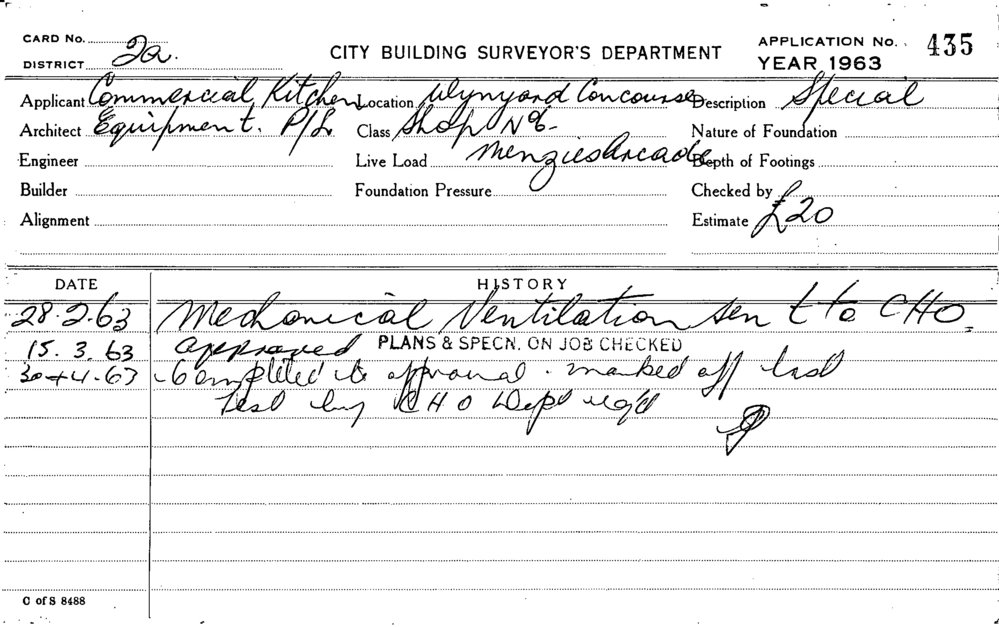 CARD No.
DISTRICT 2a.
CITY BUILDING SURVEYOR'S DEPARTMENT
APPLICATION No. 435
YEAR 1963
Applicant Commercial Kitchen Location Wynyard Concourse Description Special
Architect Equipment. P/L Class Shop No 6- Nature of Foundation
Engineer Live Load Menzies Arcade Depth of Footings
Builder Foundation Pressure Checked by
Alignment Estimate £20
DATE HISTORY
28.2.63 Mechanical Ventilation sent to CHO.
15.3.63 approved PLANS & SPECN. ON JOB CHECKED
4.63 Completed to approval. marked off last
test by CHO Dept req'd
C of S 8488